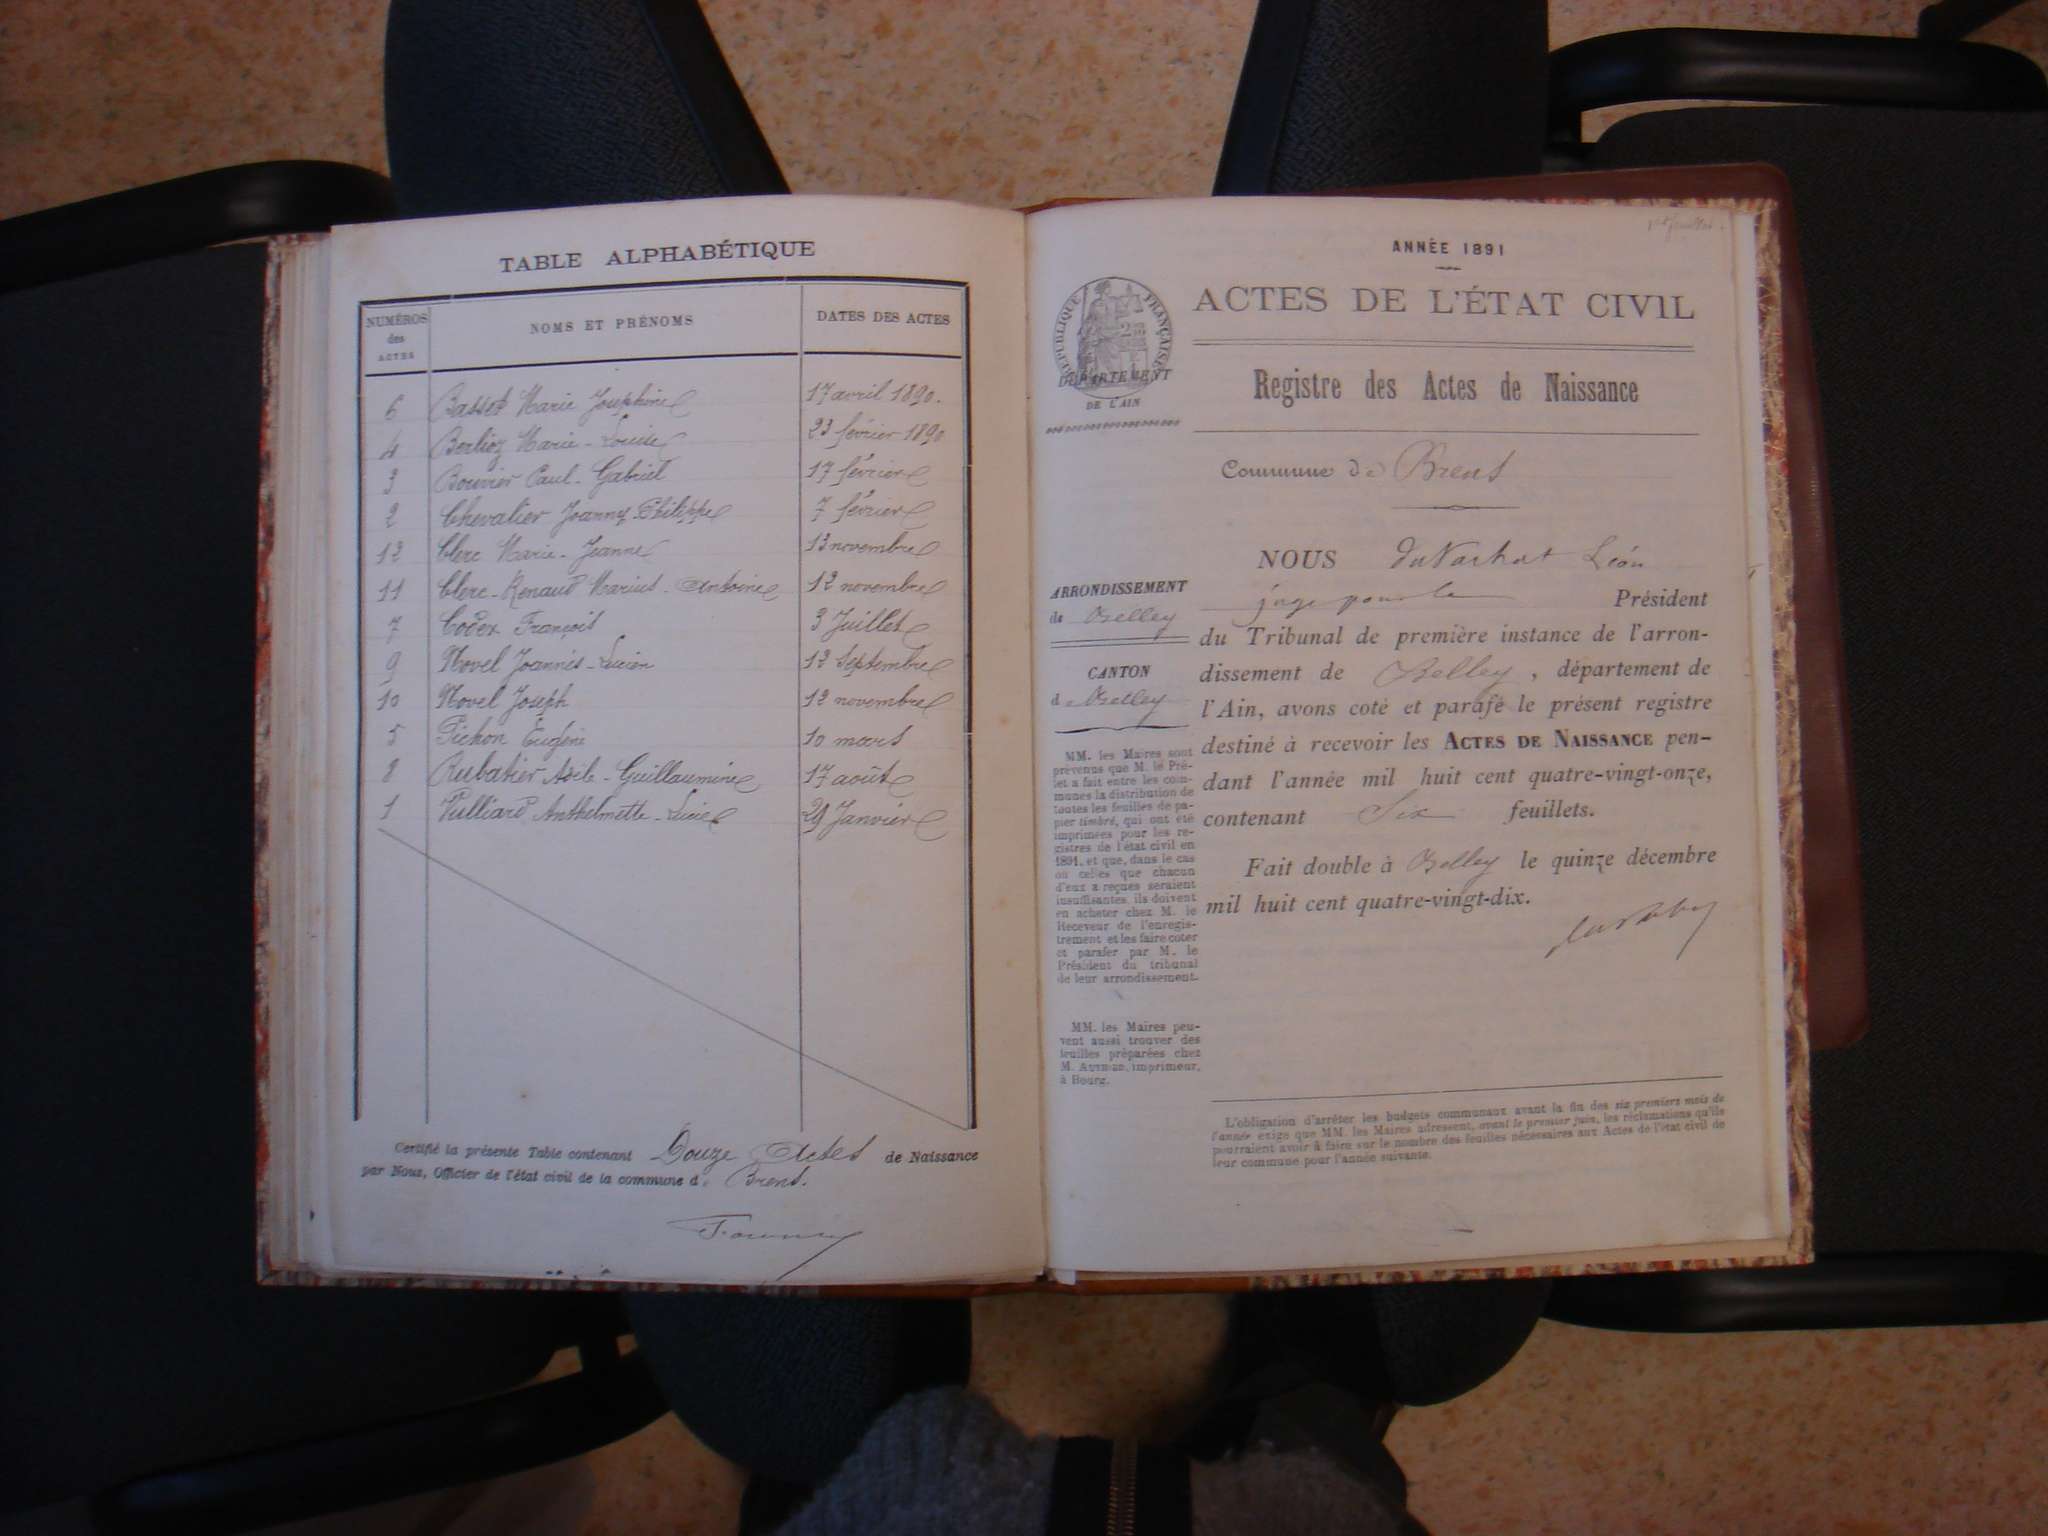 TABLE ALPHABÉTIQUE
NUMÉROS des ACTES
NOMS ET PRÉNOMS
DATES DES ACTES
6 Basset Marie Joséphine 17 avril 1890.
4 Berlioz Marie-Louise 23 février 1890
3 Bouvier Paul-Gabriel 17 février
2 Chevalier Joanny Philippe 7 février
12 Clerc Marie-Jeanne 13 novembre
11 Clerc-Renaud Marius-Antoine 12 novembre
7 Codex François 3 Juillet
9 Novel Joannès-Lucien 12 Septembre
10 Novel Joseph 12 novembre
5 Pichon Eugénie 10 mars
8 Rubatier Adèle-Guillaumine 17 août
1 Vulliard Anthelmette-Lucie 29 Janvier
Certifié la présente Table contenant Douze Actes de Naissance
par Nous, Officier de l'état civil de la commune d. Brens.
ANNÉE 1891
RÉPUBLIQUE FRANÇAISE
DÉPARTEMENT
DE L'AIN
ACTES DE L'ÉTAT CIVIL
Registre des Actes de Naissance
Commune de Brens
ARRONDISSEMENT
de Belley
CANTON
d Belley
MM. les Maires sont
prévenus que M. le Pré-
fet a fait entre les com-
munes la distribution de
toutes les feuilles de pa-
pier timbré, qui ont été
imprimées pour les re-
gistres de l'état civil en
1891, et que, dans le cas
où celles que chacun
d'eux a reçues seraient
insuffisantes, ils doivent
en acheter chez M. le
Receveur de l'enregis-
trement et les faire coter
et parafer par M. le
Président du tribunal
de leur arrondissement.
MM. les Maires peu-
vent aussi trouver des
feuilles préparées chez
M. imprimeur,
à Bourg.
NOUS Léon
juge pour le Président
du Tribunal de première instance de l'arron-
dissement de Belley, département de
l'Ain, avons coté et parafé le présent registre
destiné à recevoir les ACTES DE NAISSANCE pen-
dant l'année mil huit cent quatre-vingt-onze,
contenant Six feuillets.
Fait double à Belley le quinze décembre
mil huit cent quatre-vingt-dix.
L'obligation d'arrêter les budgets communaux avant la fin des six premiers mois de
l'année exige que MM. les Maires adressent, avant le premier juin, les réclamations qu'ils
pourraient avoir à faire sur le nombre des feuilles nécessaires aux Actes de l'état civil de
leur commune pour l'année suivante.